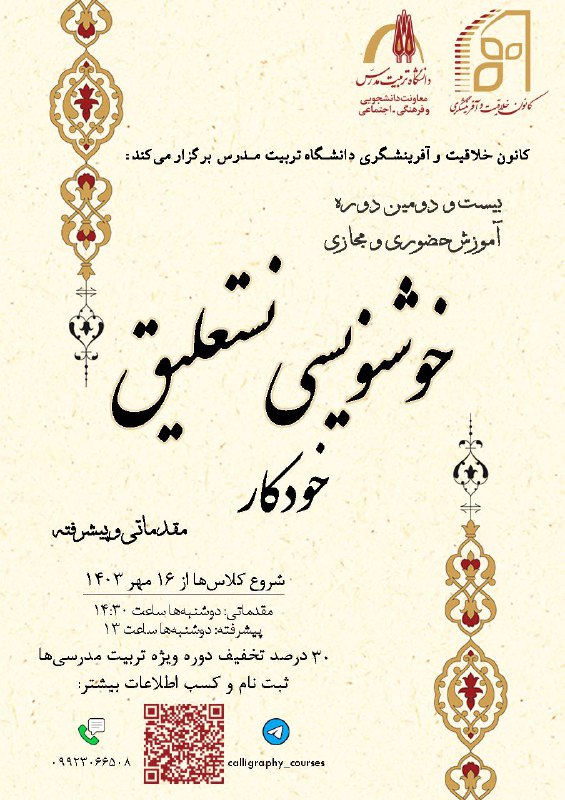 دانشگاه تربیت مدرس
معاونت دانشجویی
و فرهنگی - اجتماعی
کانون خلاقیت و آفرینشگری
کانون خلاقیت و آفرینشگری دانشگاه تربیت مدرس برگزار می‌کند:
بیست و دومین دوره
آموزش حضوری و مجازی
خوشنویسی نستعلیق
خودکار
مقدماتی و پیشرفته
شروع کلاس‌ها از ۱۶ مهر ۱۴۰۳
مقدماتی: دوشنبه‌ها ساعت ۱۴:۳۰
پیشرفته: دوشنبه‌ها ساعت ۱۳
۳۰ درصد تخفیف دوره ویژه تربیت مدرسی‌ها
ثبت نام و کسب اطلاعات بیشتر:
calligraphy_courses
۰۹۹۲۳۰۶۶۵۰۸